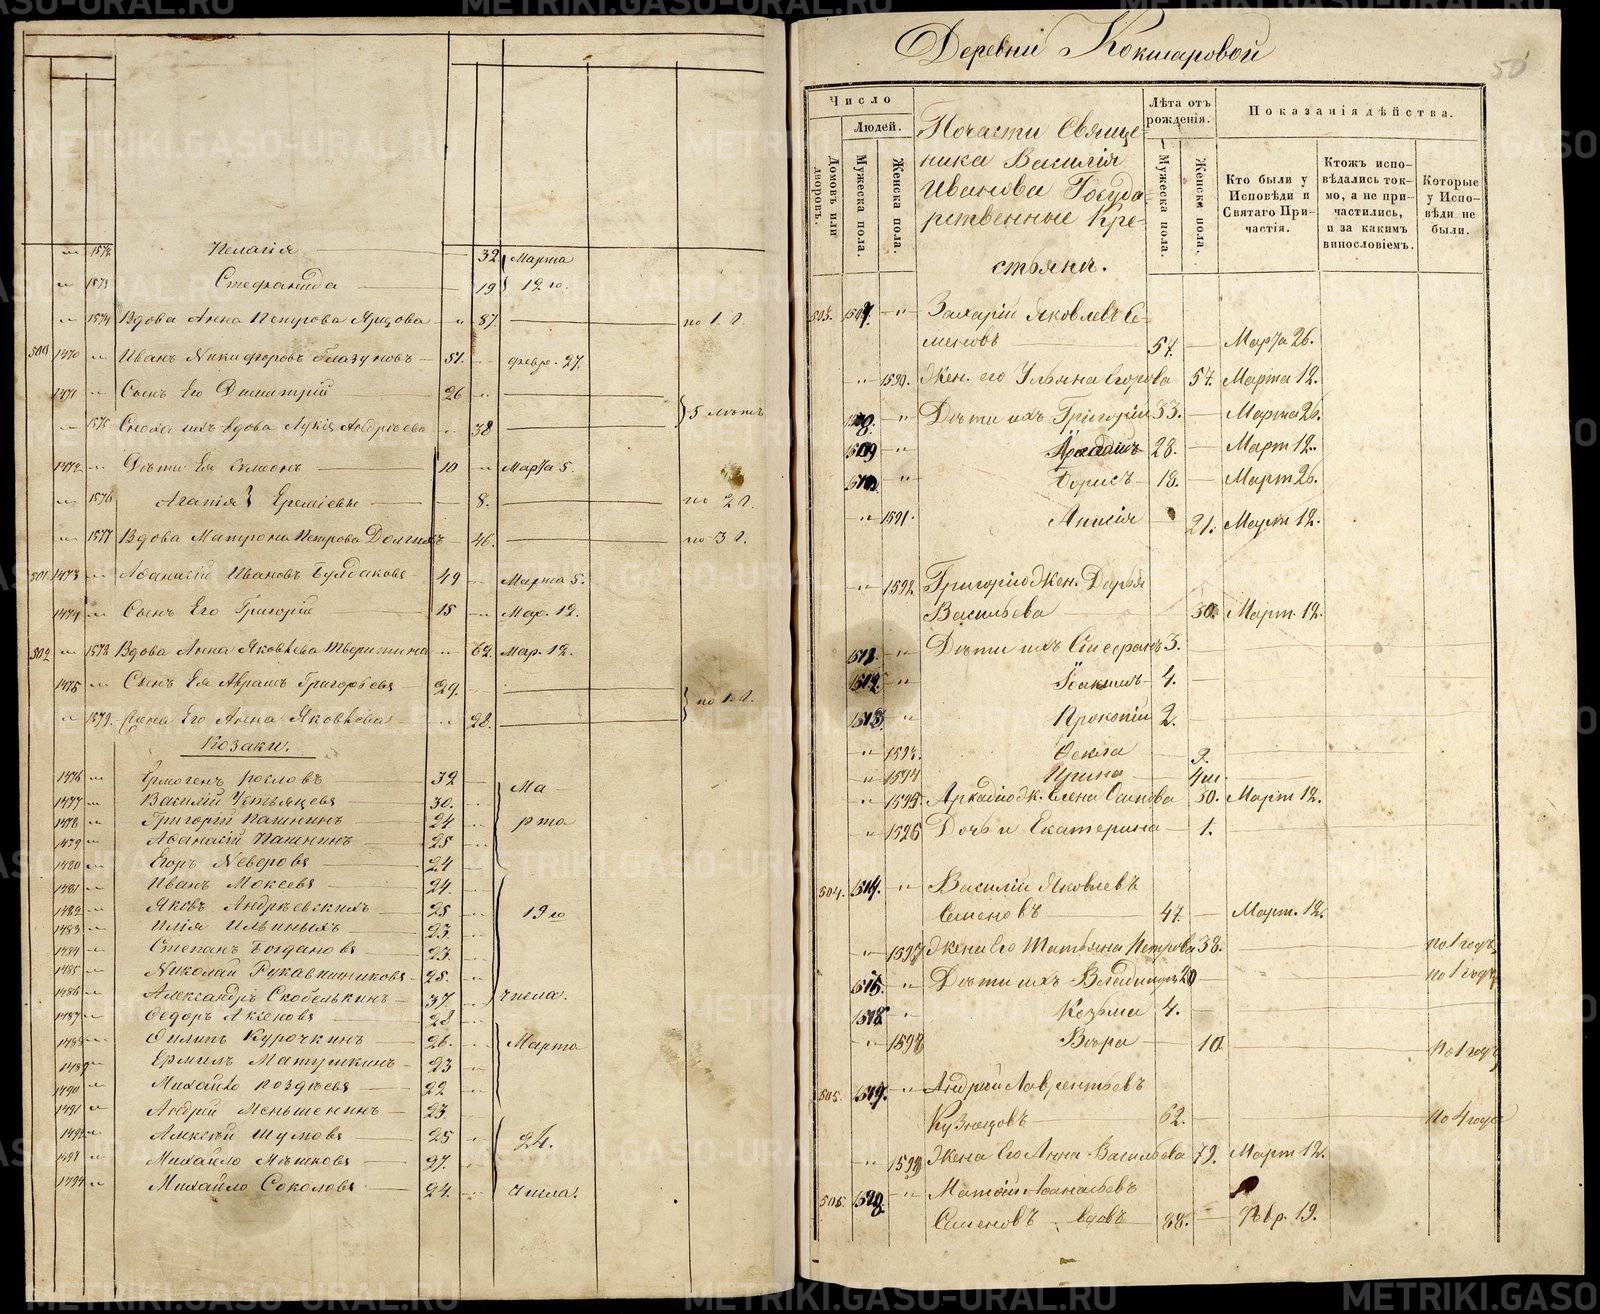 „ 1572 Пелагія 32 Марта
„ 1573 Стефанида 19 12го.
„ 1574 Вдова Анна Петрова 87. по 1 г.
500 1470 „ Иванъ Никифоровъ Глазуновъ 51. февр. 27.
1471 „ Сынъ Его Димитрій 26 „ 5 лѣтъ
„ 1575 Сноха ихъ вдова Лукія Андрѣева „ 38
1472 „ Дѣти Ея Симеонъ 10 „ Марта 5.
„ 1576 Агапія Еремѣевы 8. по 2 г.
„ 1577 Вдова Матрона Петрова Долгихъ 46. по 3 г.
501 1473 „ Аѳанасій Ивановъ Булдаковъ 49 Марта 5.
1474 „ Сынъ Его Григорій 15 „ Мар. 12.
502 „ 1578 Вдова Анна Яковлева Тверитина „ 62. Мар. 12.
1475 „ Сынъ Ея Аврамъ Григорьевъ 29. по 1 г.
„ 1579. Жена Его Анна Яковлева „ 28.
Козаки.
1476 „ Ермогенъ 32 Ма
1477 „ Василій Устьянцевъ 30.
1478 „ Григорій Пашнинъ 24 рта
1479 „ Аѳанасій Пашнинъ 25
1480 „ Егоръ Неверовъ 24
1481 „ Иванъ Мокеевъ 24.
1482 „ Яковъ Андрѣевскихъ 25 19го
1483 „ Илія Ильиныхъ 23
1484 „ Степанъ Богдановъ 23.
1485 „ Николай Рукавишниковъ 25.
1486 „ Александръ Скобелькинъ 37. числа.
1487 „ Ѳедоръ Аксеновъ 28
1488 „ Филипъ Курочкинъ 26. Марта
1489 „ Ермилъ Матушкинъ 23
1490 „ Михайло Поздѣевъ 22
1491 „ Андрей Меньшенинъ 23.
1492 „ Алексѣй Шумовъ 25 24.
1493 „ Михайло Мѣшковъ 27.
1494 „ Михайло Соколовъ 24. числа.
Деревни Кокшаровой
50
Число
Людей.
Домовъ или дворовъ.
Мужеска пола.
Женска пола.
Почасти Священика Василія Иванова Государственные Крестьяне.
Лѣта отъ рожденія.
Мужеска пола.
Женска пола.
Показанія дѣйства.
Кто были у Исповѣди и Святаго Причастія.
Ктожъ исповѣдались токмо, а не причастились, и за какимъ винословіемъ.
Которые у Исповѣди не были.
503. 1507. „ Захарій Яковлевъ Семеновъ 57. Марта 26.
„ 1590. Жен. его Ульяна Егорова 57. Марта 12.
1508. „ Дѣти ихъ Григорій 33. Марта 26.
1509 „ Аркадій 28. Март 12.
1510 „ Борисъ 18. Март 26.
„ 1591. Анисія 21. Март 12.
„ 1592 Григорію Жен. Дарья
Васильева 30. Март. 12.
„ Дѣти ихъ 3.
1512. „ Іоакимъ 4.
1513 „ Прокопій 2.
„ 1593. Ѳекла 9.
„ 1594 Ирина 4м.
„ 1595 Аркадію ж. Елена Осипова 30. Март 12.
„ 1526 Дочь и Екатерина 1.
504. 1514. „ Василій Яковлевъ
Семеновъ 47. Март. 12.
„ 1597 Жена Его Татьяна Петрова 38. по 1 годъ
1515. „ Дѣти ихъ Владимиръ 20 по 1 годъ
1518 „ Козьма 4.
„ 1598 Вѣра 10 по 1 годъ
505. 1519. „ Андрей Лаврентьевъ
Кузнецовъ 62. по 4 года
„ 1599 Жена Его Анна Васильева 79. Март 12.
506. 1520. „ Матѳій Аѳанасьевъ
Семеновъ вдовъ 88. Февр. 19.
METRIKI.GASO-URAL.RU